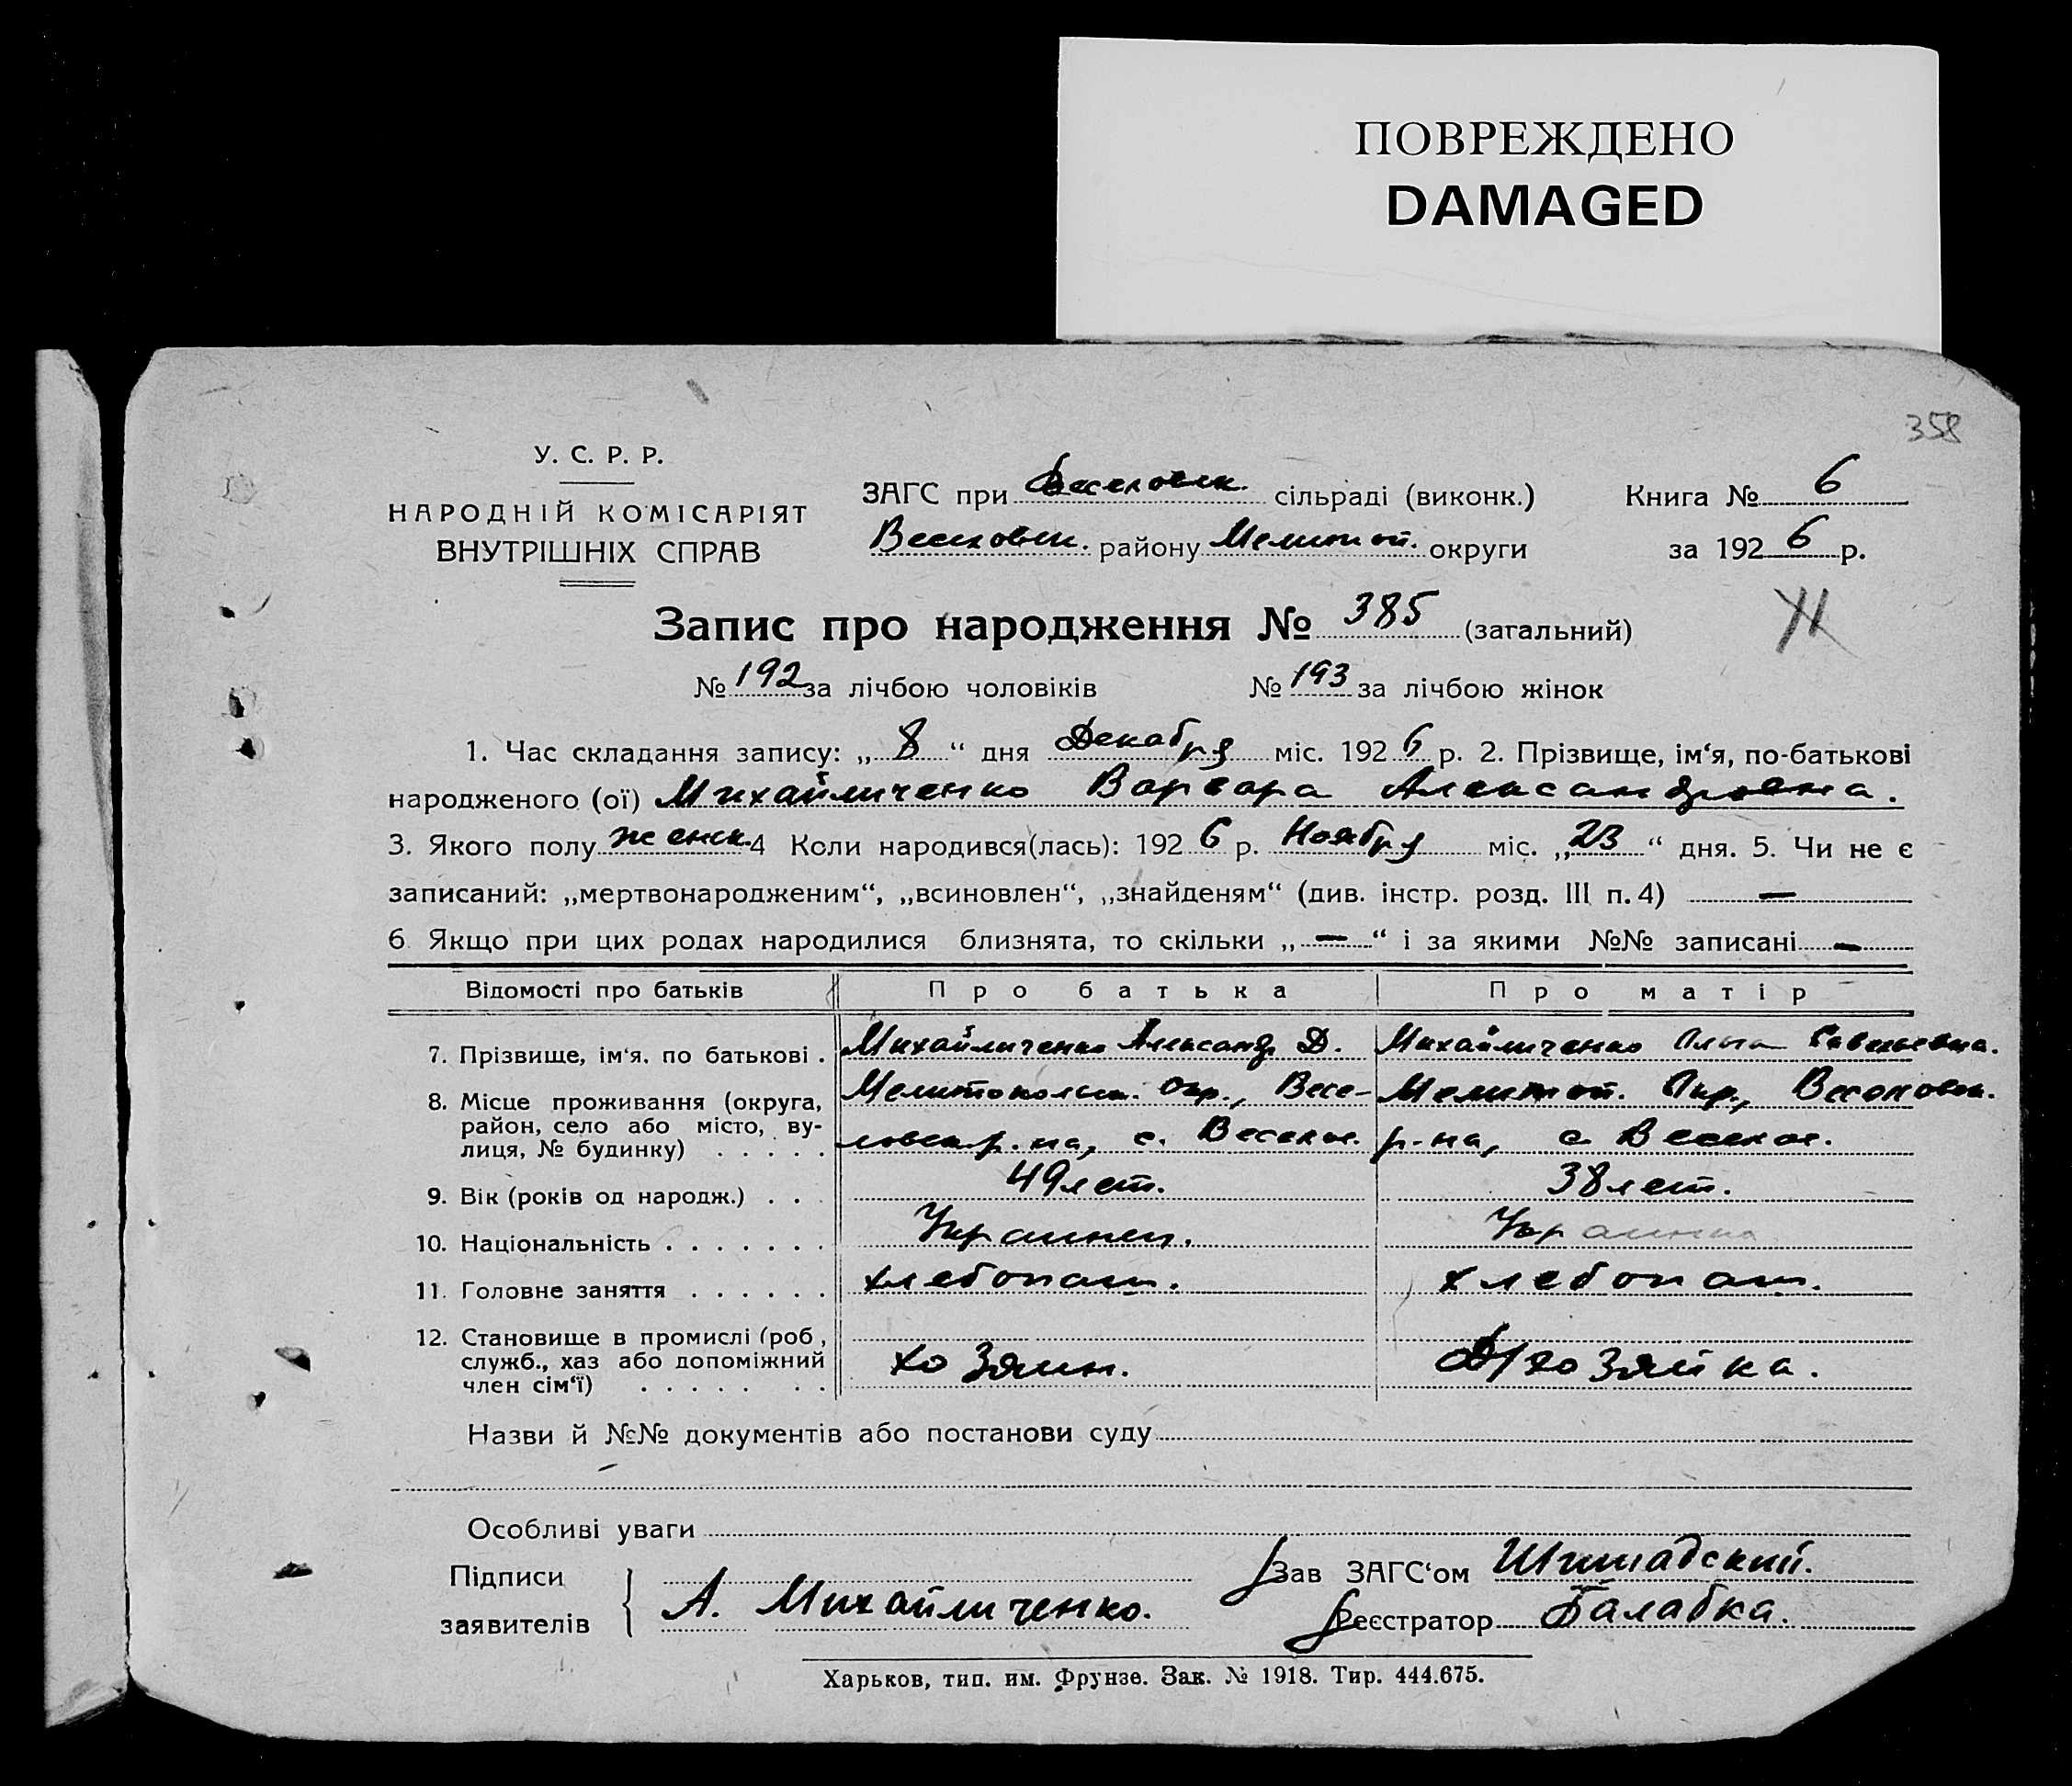 ПОВРЕЖДЕНО
DAMAGED
358
У. С. Р. Р.
НАРОДНІЙ КОМІСАРІЯТ
ВНУТРІШНІХ СПРАВ
ЗАГС при Веселовск. сільраді (виконк.)
Веселовск. району Мелитоп. округи
Книга № 6
за 1926 р.
Запис про народження № 385 (загальний)
№ 192 за лічбою чоловіків № 193 за лічбою жінок
1. Час складання запису: „8“ дня Декабря міс. 1926 р. 2. Прізвище, ім‘я, по-батькові
народженого (ої) Михайличенко Варвара Александровна.
3. Якого полу женск. 4 Коли народився(лась): 1926 р. Ноября міс. „23“ дня. 5. Чи не є
записаний: „мертвонародженим“, „всиновлен“, „знайденям“ (див. інстр. розд. III п. 4) —
6 Якщо при цих родах народилися близнята, то скільки „—“ і за якими №№ записані —
Відомості про батьків Про батька Про матір
7. Прізвище, ім‘я, по батькові . Михайличенко Александр Д. Михайличенко Савельевна.
8. Місце проживання (округа, район, село або місто, вулиця, № будинку) . . . . . Мелитопольск. Окр., Весе- Мелитоп. Окр., Веселовск.
ловск р-на, с. Веселое. р-на, с. Веселое.
9. Вік (років од народж.) . . . 49 лет. 38 лет.
10. Національність . . . . . . . Украинец. Украинка
11. Головне заняття . . . . . . хлебопаш. хлебопаш.
12. Становище в промислі (роб, служб., хаз або допоміжний член сім‘ї) . . . . . . . хозяин. хозяйка.
Назви й №№ документів або постанови суду
Особливі уваги
Підписи
заявителів
А. Михайличенко.
Зав ЗАГС‘ом Шишадский.
Реєстратор Балабка.
Харьков, тип. им. Фрунзе. Зак. № 1918. Тир. 444.675.